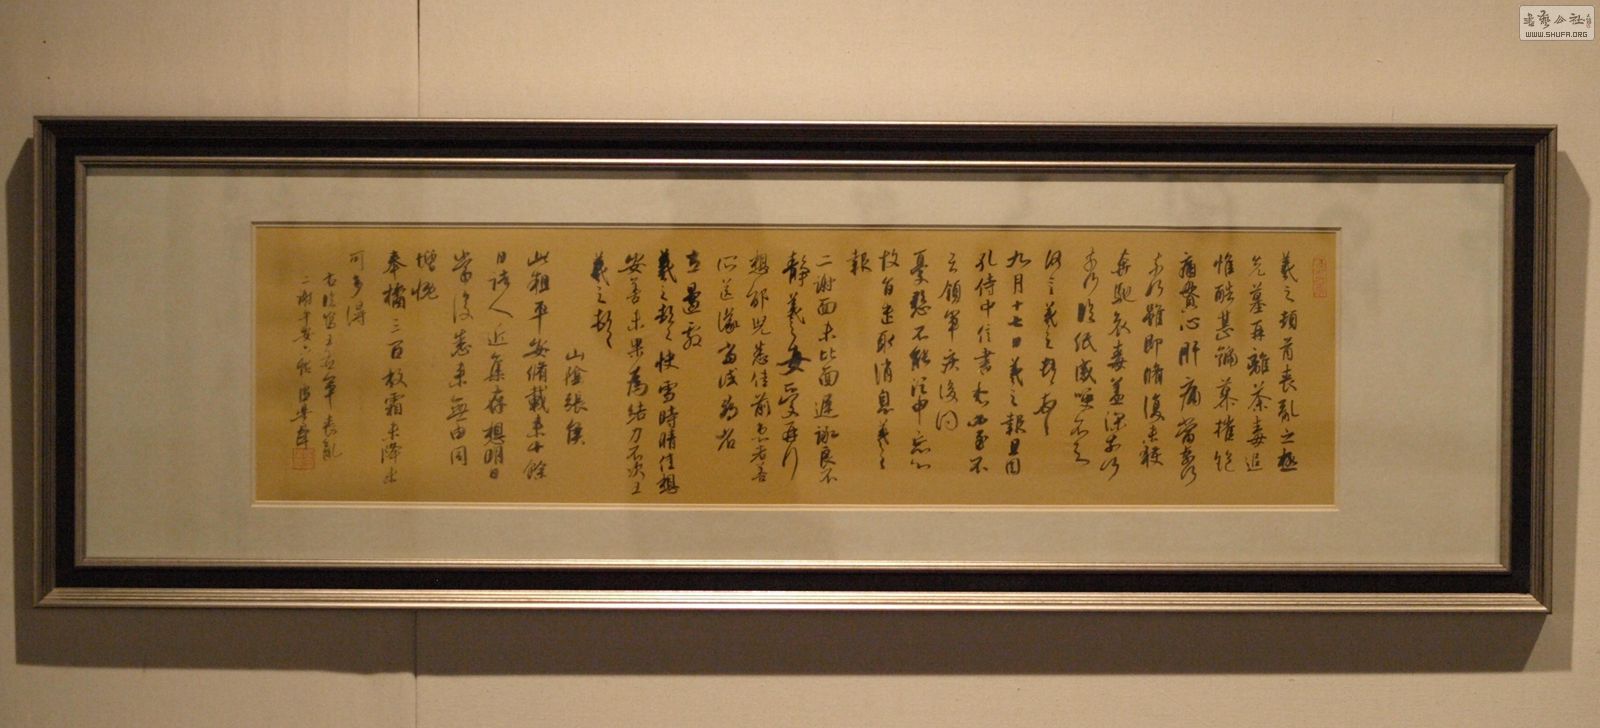 羲之頓首喪亂之極
先墓再離荼毒追
惟酷甚號慕摧絕
痛貫心肝痛當奈何
奈何雖即脩復未獲
奔馳哀毒益深奈何
奈何臨紙感哽不知
何言羲之頓首
九月十七日羲之報且因
孔侍中信書想必至不
知領軍疾後問
憂懸不能須臾忘心
故旨遣取消息羲之
報
二謝面未比面遲詠良不
靜羲之女愛再拜
想邰兒悉佳前患者善
所送議當試尋省
左邊劇
羲之頓首快雪時晴佳想
安善未果為結力不次王
羲之頓首
山陰張侯
此粗平安脩載來十餘
日諸人近集存想明日
當復悉來無由同
增慨
奉橘三百枚霜未降未
可多得
右臨寫王右軍喪亂
二謝平安
書藝公社
WWW.SHUFA.ORG